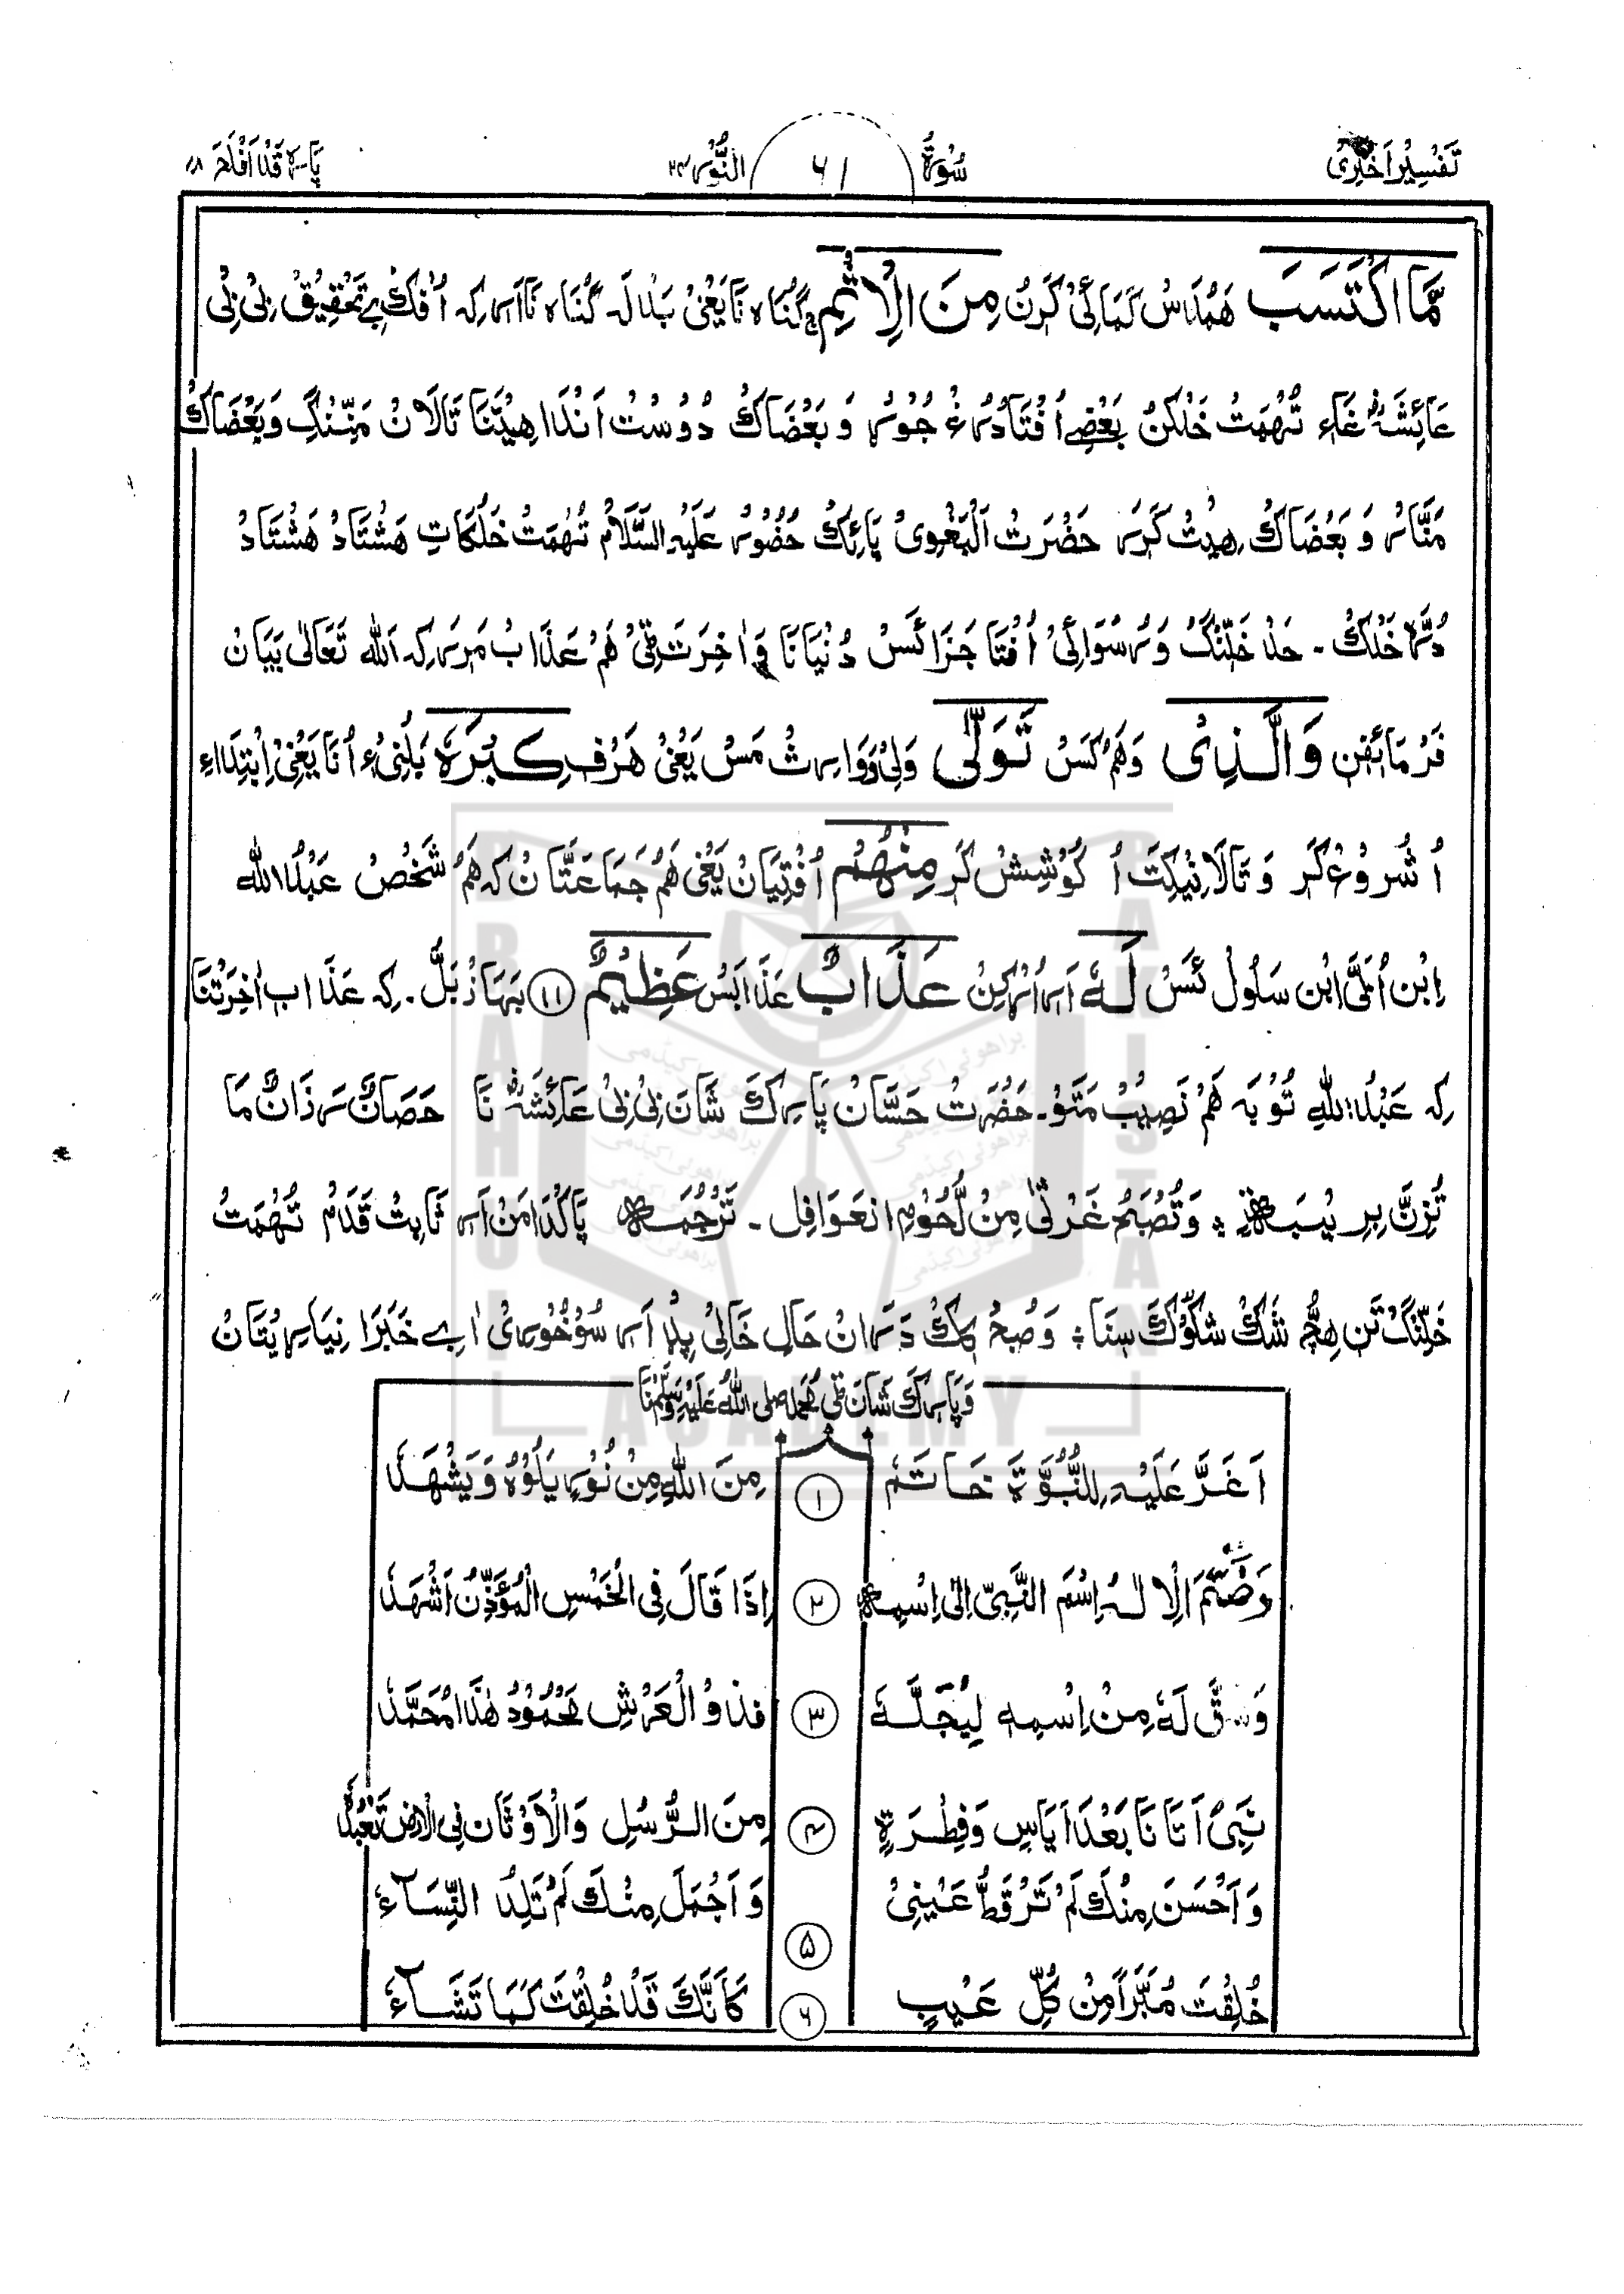 تَفْسِیْر اَخِیْرِیْ سُوْرَۃُ ۶۱ النُّوْر ۲۴ پارہ قَدْ اَفْلَحَ ۱۸
مَّا اكْتَسَبَ هَمُدَاسْ كَمَائِیْ كَرَنْ مِنَ الْاِثْمِ ج گُنَاہ نَا یَعْنِیْ بَدْلَہ گُنَاہ نَا اَرِ كِہ اُفْكْ بے تَحْقِیْقْ بِیْ بِیْ
عَائِشَہؓ غَاءِ تُهْمَتْ خَلْكُنْ بَعْضِے اُفْتَا دُرُغْ جُوْر وَ بَعْضَاكْ دُوْسْتْ اَنْدَا هِیْتَنَا تَالَانْ مَنِّنْگِ وَ بَعْضَاكْ
مَنَّارْ وَ بَعْضَاكْ هِیْتْ كَرَرَ حَضْرَتْ اَلْبَغْوِیْ پَائِكْ حُضُوْر عَلَیْہِ السَّلَامْ تُهْمَتْ خَلْكَاتِ هَشْتَادْ هَشْتَادْ
دُرَّہ خَلْكْ ۔ حَدْ خَلِّنْگْ وَ رُسْوَائِیْ اُفْتَا جَزَا ئَسْ دُنْیَا نَا وَ اٰخِرَتْ ٹِیْ هَمْ عَذَابْ مَرَرَ كِہ اَللّٰہ تَعَالٰی بَیَانْ
فَرْمَائِفِنْ وَالَّذِیْ وَ هَمْ كَسْ تَوَلّٰی وَلِیْ وَ وَارِثْ مَسْ یَعْنِیْ هَرْفِ كِبْرَہٗ بَلُنِیْءِ اُنَا یَعْنِیْ اِبْتِدَاءِ
اُ شُرُوْعْ كَرِ وَ تَالَانِیْكِتْ اُ كُوْشِشْ كَرِ مِنْهُمْ اُفْتِیَانْ یَعْنِیْ هَمْ جَمَاعَتَّانْ كِہ هَمْ شَخْصْ عَبْدُ اللّٰہ
اِبْنِ اُبَیِّ ابْنِ سَلُوْل ئَسْ لَہٗ اَرِ اُرْكِنْ عَذَابٌ عَذَابَسْ عَظِیْمٌ ۱۱ بَهَازْ بَلَّ ۔ كِہ عَذَابِ اٰخِرَتْنَا
كِہ عَبْدُ اللّٰہِ تُوْبَہ هَمْ نَصِیْبْ مَتَوْ ۔ حَضْرَتْ حَسَّانْ پَارِكْ شَانَ بِیْ بِیْ عَائِشَہؓ نَا حَصَانٌ رَذَانٌ مَا
تُزَنَّ بِرِیْبَۃٍ ؞ وَتُصْبِحُ غَرْثٰی مِنْ لُّحُوْمِ انعَوَافِلِ ۔ تَرْجُمَہ پَاكْدَامَنْ اَرِ ثَابِتْ قَدَمْ تُهْمَتْ
خَلِّنْگْ تَنْ هِچُّ شَكْ شَكُوْكَ سِنَا ؞ وَ صُبْحُ كِكْ دَرَانْ حَالِ خَالِیْ پِڈْ اَرِ سُوْخُوْرِیْ اٰرے خَبَرَا نِیَارِیْتَانْ
وَ پَارِكَ شَانَ ٹِیْ مُحَمَّد صلی اللّٰہُ عَلَیْہِ وَسَلَّمْنَا
اَغَرَّ عَلَیْہِ لِلنُّبُوَّۃِ خَاتَمٌ ۱ مِنَ اللّٰہِ مِنْ نُوْرٍ یَلُوْہُ وَ یَشْهَدٗ
وَضَمَّ الْاِلٰہُ اِسْمَ النَّبِیِّ اِلٰی اِسْمِہٖ ۲ اِذَا قَالَ فِی الْخَمْسِ الْمُؤَذِّنُ اَشْهَدٗ
وَشَقَّ لَہٗ مِنْ اِسْمِہٖ لِیُجَلَّہٗ ۳ فَذُو الْعَرْشِ مَحْمُوْدٌ هٰذَا مُحَمَّدٗ
نَبِیٌّ اَتَانَا بَعْدَ اَیَاسٍ وَفِطْرَۃٍ ۴ مِنَ الرُّسُلِ وَالْاَوْثَانِ فِی الْاَرْضِ تَعْبُدٗ
وَ اَحْسَنَ مِنْكَ لَمْ تَرْ قَطُّ عَیْنِیْ ۵ وَ اَجْمَلَ مِنْكَ لَمْ تَلِدِ النِّسَآءٗ
خُلِقْتَ مُبَرَّاً مِنْ كُلِّ عَیْبٍ ۶ كَاَنَّكَ قَدْ خُلِقْتَ كَمَا تَشَآءٗ
BRAHUI
ACADEMY
PAKISTAN